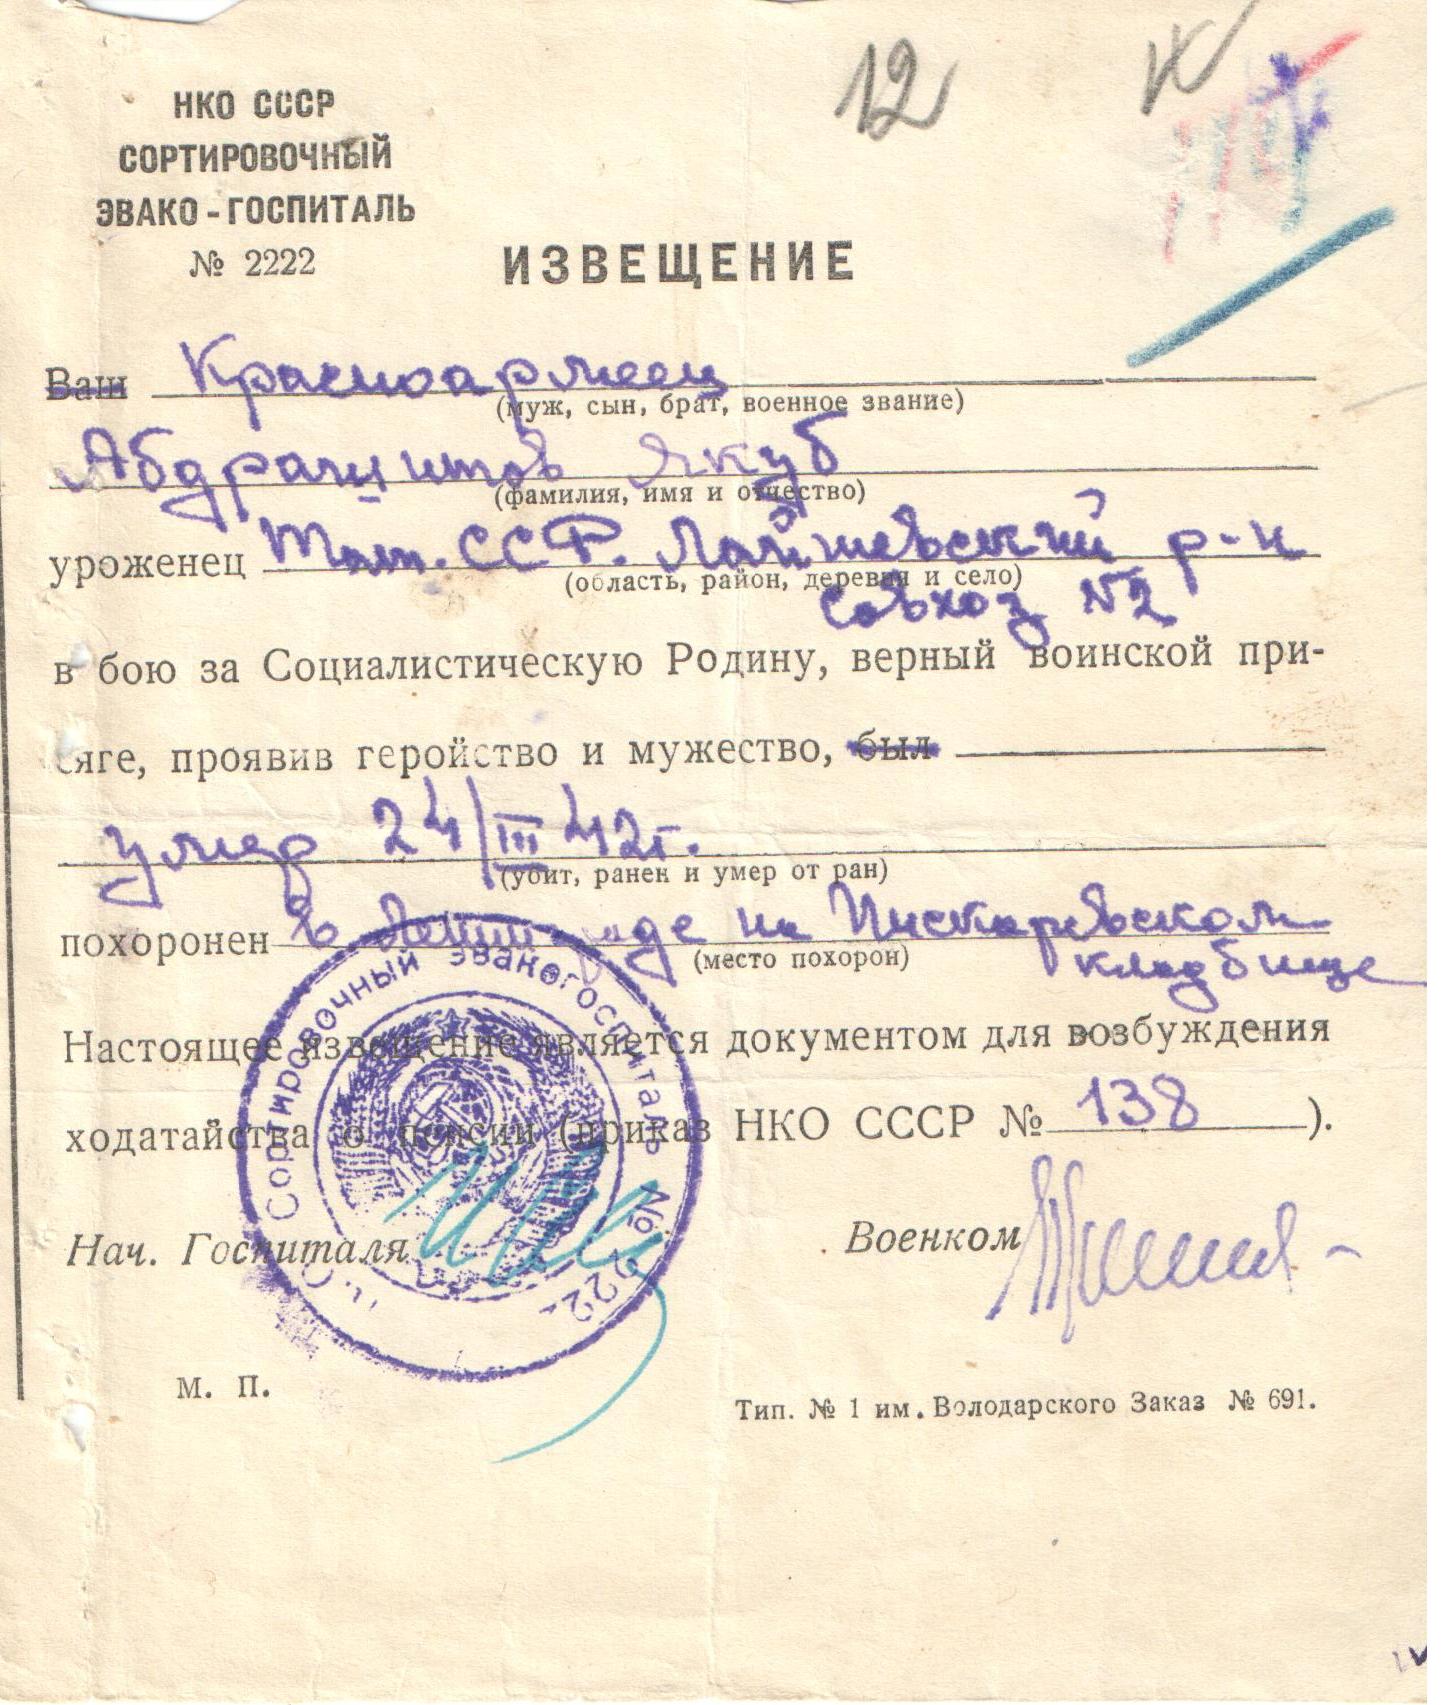 12
НКО СССР
СОРТИРОВОЧНЫЙ
ЭВАКО-ГОСПИТАЛЬ
№ 2222
ИЗВЕЩЕНИЕ
Ваш Красноармеец
(муж, сын, брат, военное звание)
Абдрашитов Якуб
(фамилия, имя и отчество)
уроженец Тат.ССР. Лайшевский р-н
(область, район, деревня и село)
совхоз №2
в бою за Социалистическую Родину, верный воинской при-
сяге, проявив геройство и мужество, был
умер 24/III 42г.
(убит, ранен и умер от ран)
похоронен в Ленинграде на Пискаревском
(место похорон)
кладбище
Настоящее извещение является документом для возбуждения
ходатайства о пенсии (приказ НКО СССР № 138 ).
Сортировочный эвакогоспиталь № 222
Нач. Госпиталя
Военком
М. П.
Тип. № 1 им. Володарского Заказ № 691.